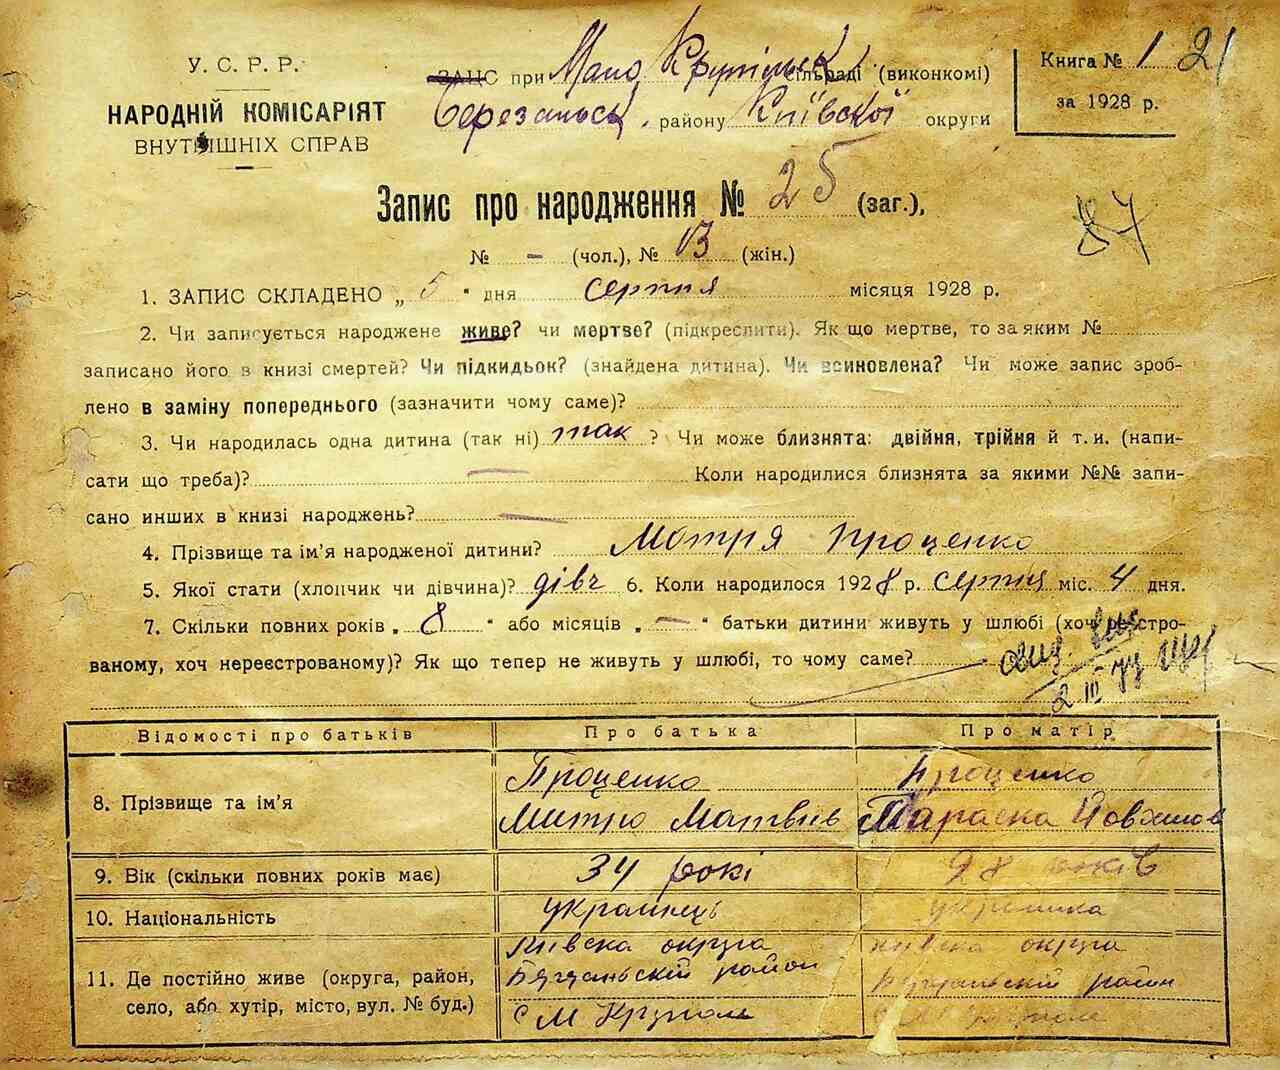 У. С. Р. Р.
НАРОДНІЙ КОМІСАРІЯТ
ВНУТРІШНІХ СПРАВ
ЗАЦС при Мало Крупільск сільраді (виконкомі)
Березанськ. району Київскої округи
Книга № 1 21
за 1928 р.
Запис про народження № 25 (заг.),
87
№ — (чол.), № 13 (жін.)
1. ЗАПИС СКЛАДЕНО „ 5 " дня серпня місяця 1928 р.
2. Чи записується народжене живе? чи мертве? (підкреслити). Як що мертве, то за яким №
записано його в книзі смертей? Чи підкидьок? (знайдена дитина). Чи всиновлена? Чи може запис зроб-
лено в заміну попереднього (зазначити чому саме)?
3. Чи народилась одна дитина (так ні) так ? Чи може близнята: двійня, трійня й т. и. (напи-
сати що треба)? — Коли народилися близнята за якими №№ запи-
сано инших в книзі народжень? —
4. Прізвище та ім'я народженої дитини? Мотря Проценко
5. Якої стати (хлопчик чи дівчина)? дівч 6. Коли народилося 1928 р. серпня міс. 4 дня.
7. Скільки повних років „ 8 " або місяців „ — " батьки дитини живуть у шлюбі (хоч реєстро-
ваному, хоч нереєстрованому)? Як що тепер не живуть у шлюбі, то чому саме?
Відомості про батьків Про батька Про матір
8. Прізвище та ім'я Проценко Проценко
Митро Матвіїв Параска Йовхимов
9. Вік (скільки повних років має) 34 рокі 28 років
10. Національність українець українка
11. Де постійно живе (округа, район, село, або хутір, місто, вул. № буд.) Київска округа Київска округа
район район
с М Круполь с М Круполь